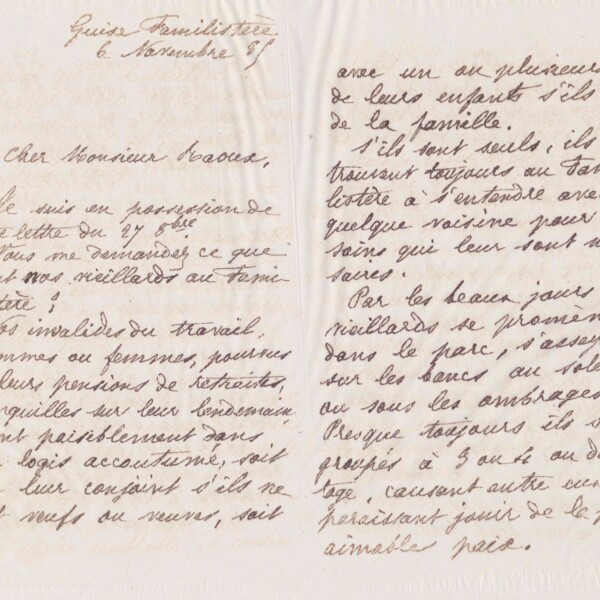 Guise Familistère
6 Novembre 85
Cher Monsieur Raoux,
Je suis en possession de
lettre du 27 8bre
Vous me demandez ce que
nos vieillards au Fami-
tère ?
os invalides du travail,
ommes ou femmes, pourvus
leurs pensions de retraites,
nquilles sur leur lendemain,
ent paisiblement dans
logis accoutumé, soit
leur conjoint s'ils ne
t veufs ou veuves, soit
avec un ou plusieurs
de leurs enfants s'ils
de la famille.
S'ils sont seuls, ils
trouvent toujours au Fam
listère à s'entendre avec
quelque voisine pour
soins qui leur sont n
saires.
Par les beaux jours
vieillards se promèn
dans le parc, s'assey
sur les bancs au sole
ou sous les ombrages
Presque toujours ils s
groupés à 3 ou 4 ou da
tage, causant entre eux
paraissant jouir de la p
aimable paix.